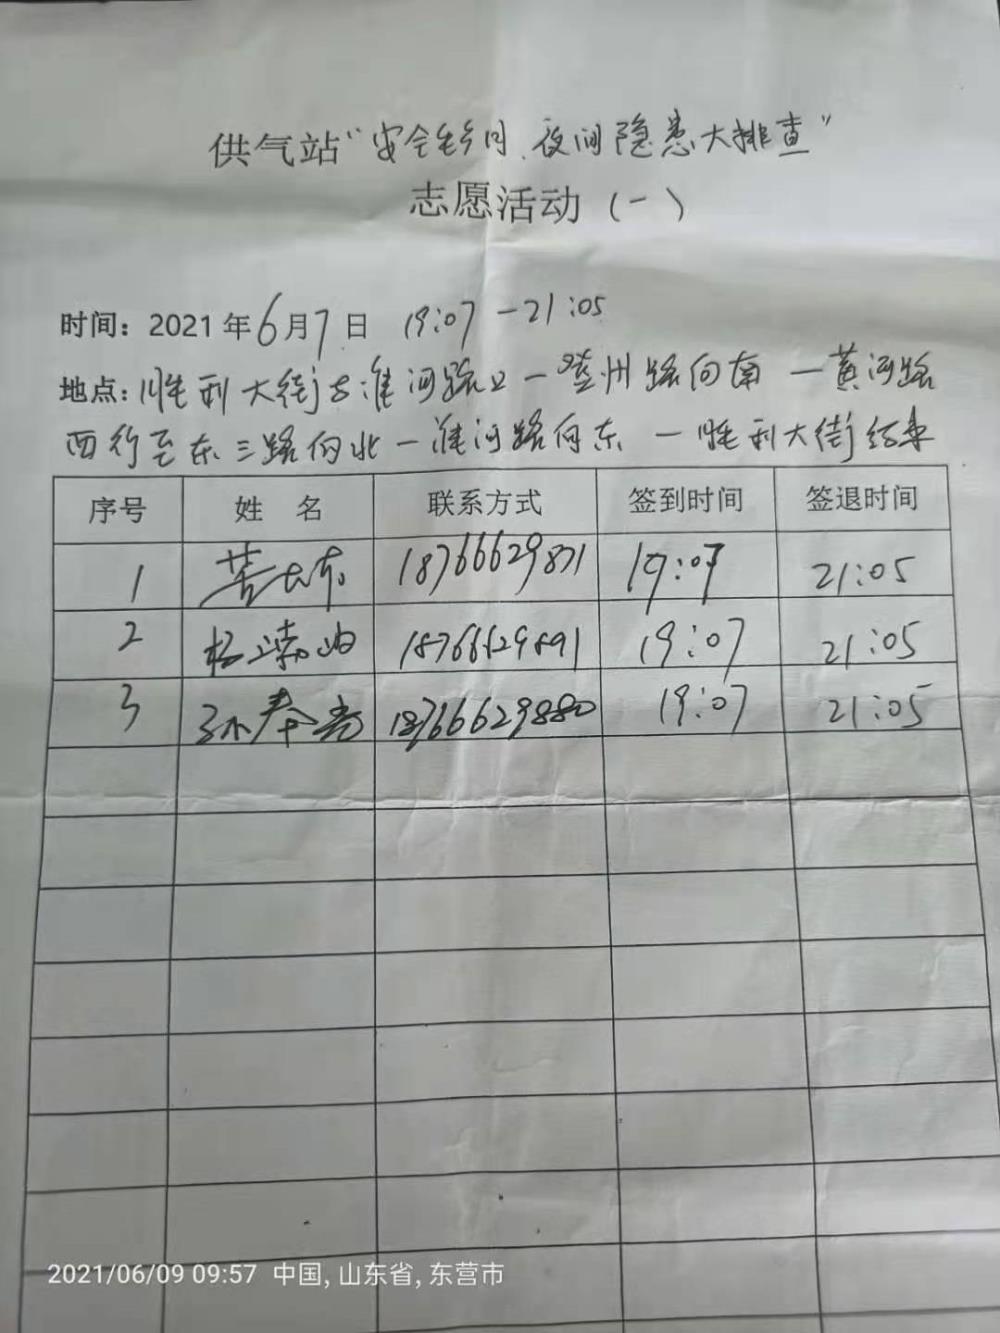 供气站“安全每月、夜间隐患大排查”
志愿活动（一）
时间：2021年6月7日 19:07—21:05
地点：胜利大街与淮河路口—登州路向南—黄河路
西行至东三路向北—淮河路向东—胜利大街结束
序号 姓 名 联系方式 签到时间 签退时间
1 18766629871 19:07 21:05
2 杨 18766629891 19:07 21:05
3 孙春 18766629880 19:07 21:05
2021/06/09 09:57 中国, 山东省, 东营市